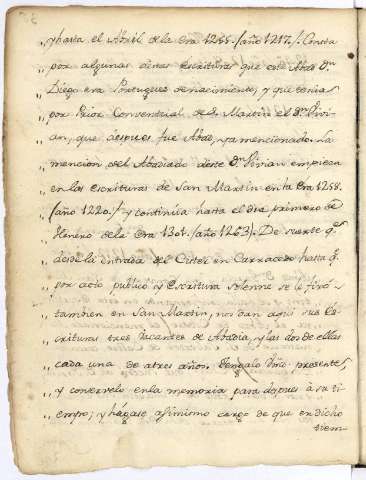 „ y hasta el Abril de la Era 1255. (año 1217.). Consta
„ por algunas destas escrituras que este Abad Dn
„ Diego era Portugues de nacimiento, y que tenia
„ por Prior Conventual de S. Martin el Dn Vivi-
„ an, que despues fue Abad, ya mencionado. La
„ mencion del Abadiado deste Dn Vivian empieza
„ en las escrituras de San Martin en la Era 1258.
„ (año 1220.) y continúa hasta el dia primero de
„ Henero de la Era 1301. (año 1263.). De suerte qe
„ desde la entrada del Cister en Carracedo hasta qe
„ por acto publico y Escritura solenne se le
„ tambien en San Martin, nos dan aqui sus Es-
„ crituras tres Vacantes de Abadia, y las dos de ellas
„ cada una de atres años. Tengalo Vmd presente,
„ y conservelo en la memoria para despues à su ti-
„ empo; y hágase assimismo cargo de que en dicho
tiem-